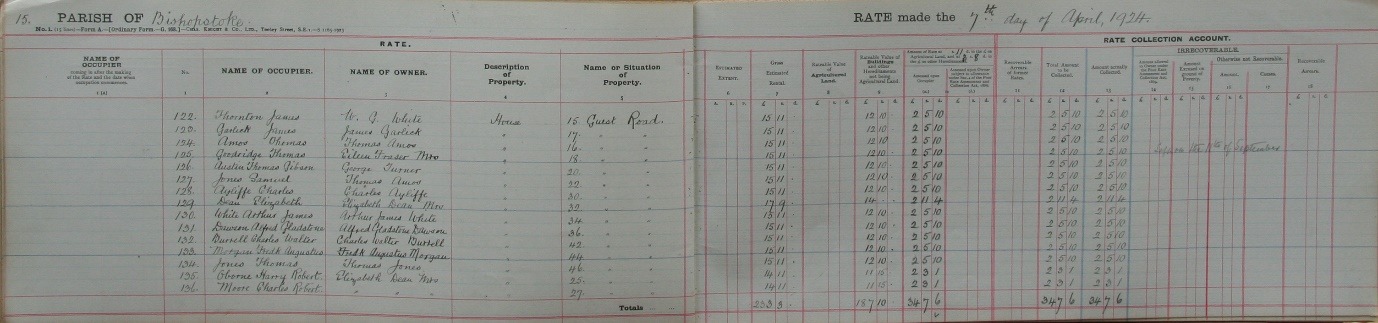 15. PARISH OF Bishopstoke RATE made the 7th day of April, 1924.
RATE. RATE COLLECTION ACCOUNT.
NAME OF OCCUPIER No. NAME OF OCCUPIER. NAME OF OWNER. Description of Property. Name or Situation of Property. ESTIMATED EXTENT. Gross Estimated Rental. Rateable Value of Agricultural Land. Rateable Value of Buildings and other Hereditaments not being Agricultural Land. Recoverable Arrears of former Rates. Total Amount to be Collected. Amount actually Collected. IRRECOVERABLE. Otherwise not Recoverable. Amount. Causes. Recoverable Arrears.
122. Thornton James W. J. White House 15 Guest Road. 15 11 12 10 2 5 10 2 5 10 2 5 10
123. Garlick James James Garlick " 17. " " 15 11 12 10 2 5 10 2 5 10 2 5 10
124. Amos Thomas Thomas Amos " 16. " " 15 11 12 10 2 5 10 2 5 10 2 5 10
125. Goodridge Thomas Eileen Fraser Mrs " 18 " " 15 11 12 10 2 5 10 2 5 10 2 5 10
126. Austin Thomas Gibson George Turner " 20. " " 15 11 12 10 2 5 10 2 5 10 2 5 10
127. Jones Samuel Thomas Amos " 22. " " 15 11 12 10 2 5 10 2 5 10 2 5 10
128. Ayliffe Charles Charles Ayliffe " 30. " " 15 11 12 10 2 5 10 2 5 10 2 5 10
129. Dean Elizabeth Elizabeth Dean Mrs " 32. " " 17 9 14 2 11 4 2 11 4 2 11 4
130. White Arthur James Arthur James White " 34. " " 15 11 12 10 2 5 10 2 5 10 2 5 10
131. Dawson Alfred Gladstone Alfred Gladstone Dawson " 36. " " 15 11 12 10 2 5 10 2 5 10 2 5 10
132. Burrell Charles Walter Charles Walter Burrell " 42. " " 15 11 12 10 2 5 10 2 5 10 2 5 10
133. Morgan Fredk Augustus Fredk Augustus Morgan " 44. " " 15 11 12 10 2 5 10 2 5 10 2 5 10
134. Jones Thomas Thomas Jones " 46. " " 15 11 12 10 2 5 10 2 5 10 2 5 10
135. Oborne Harry Robert Elizabeth Dean Mrs " 25. " " 14 11 11 15 2 3 1 2 3 1 2 3 1
136. Moore Charles Robert " " " " 27. " " 14 11 11 15 2 3 1 2 3 1 2 3 1
Totals 233 3 187 10 34 7 6 34 7 6 34 7 6